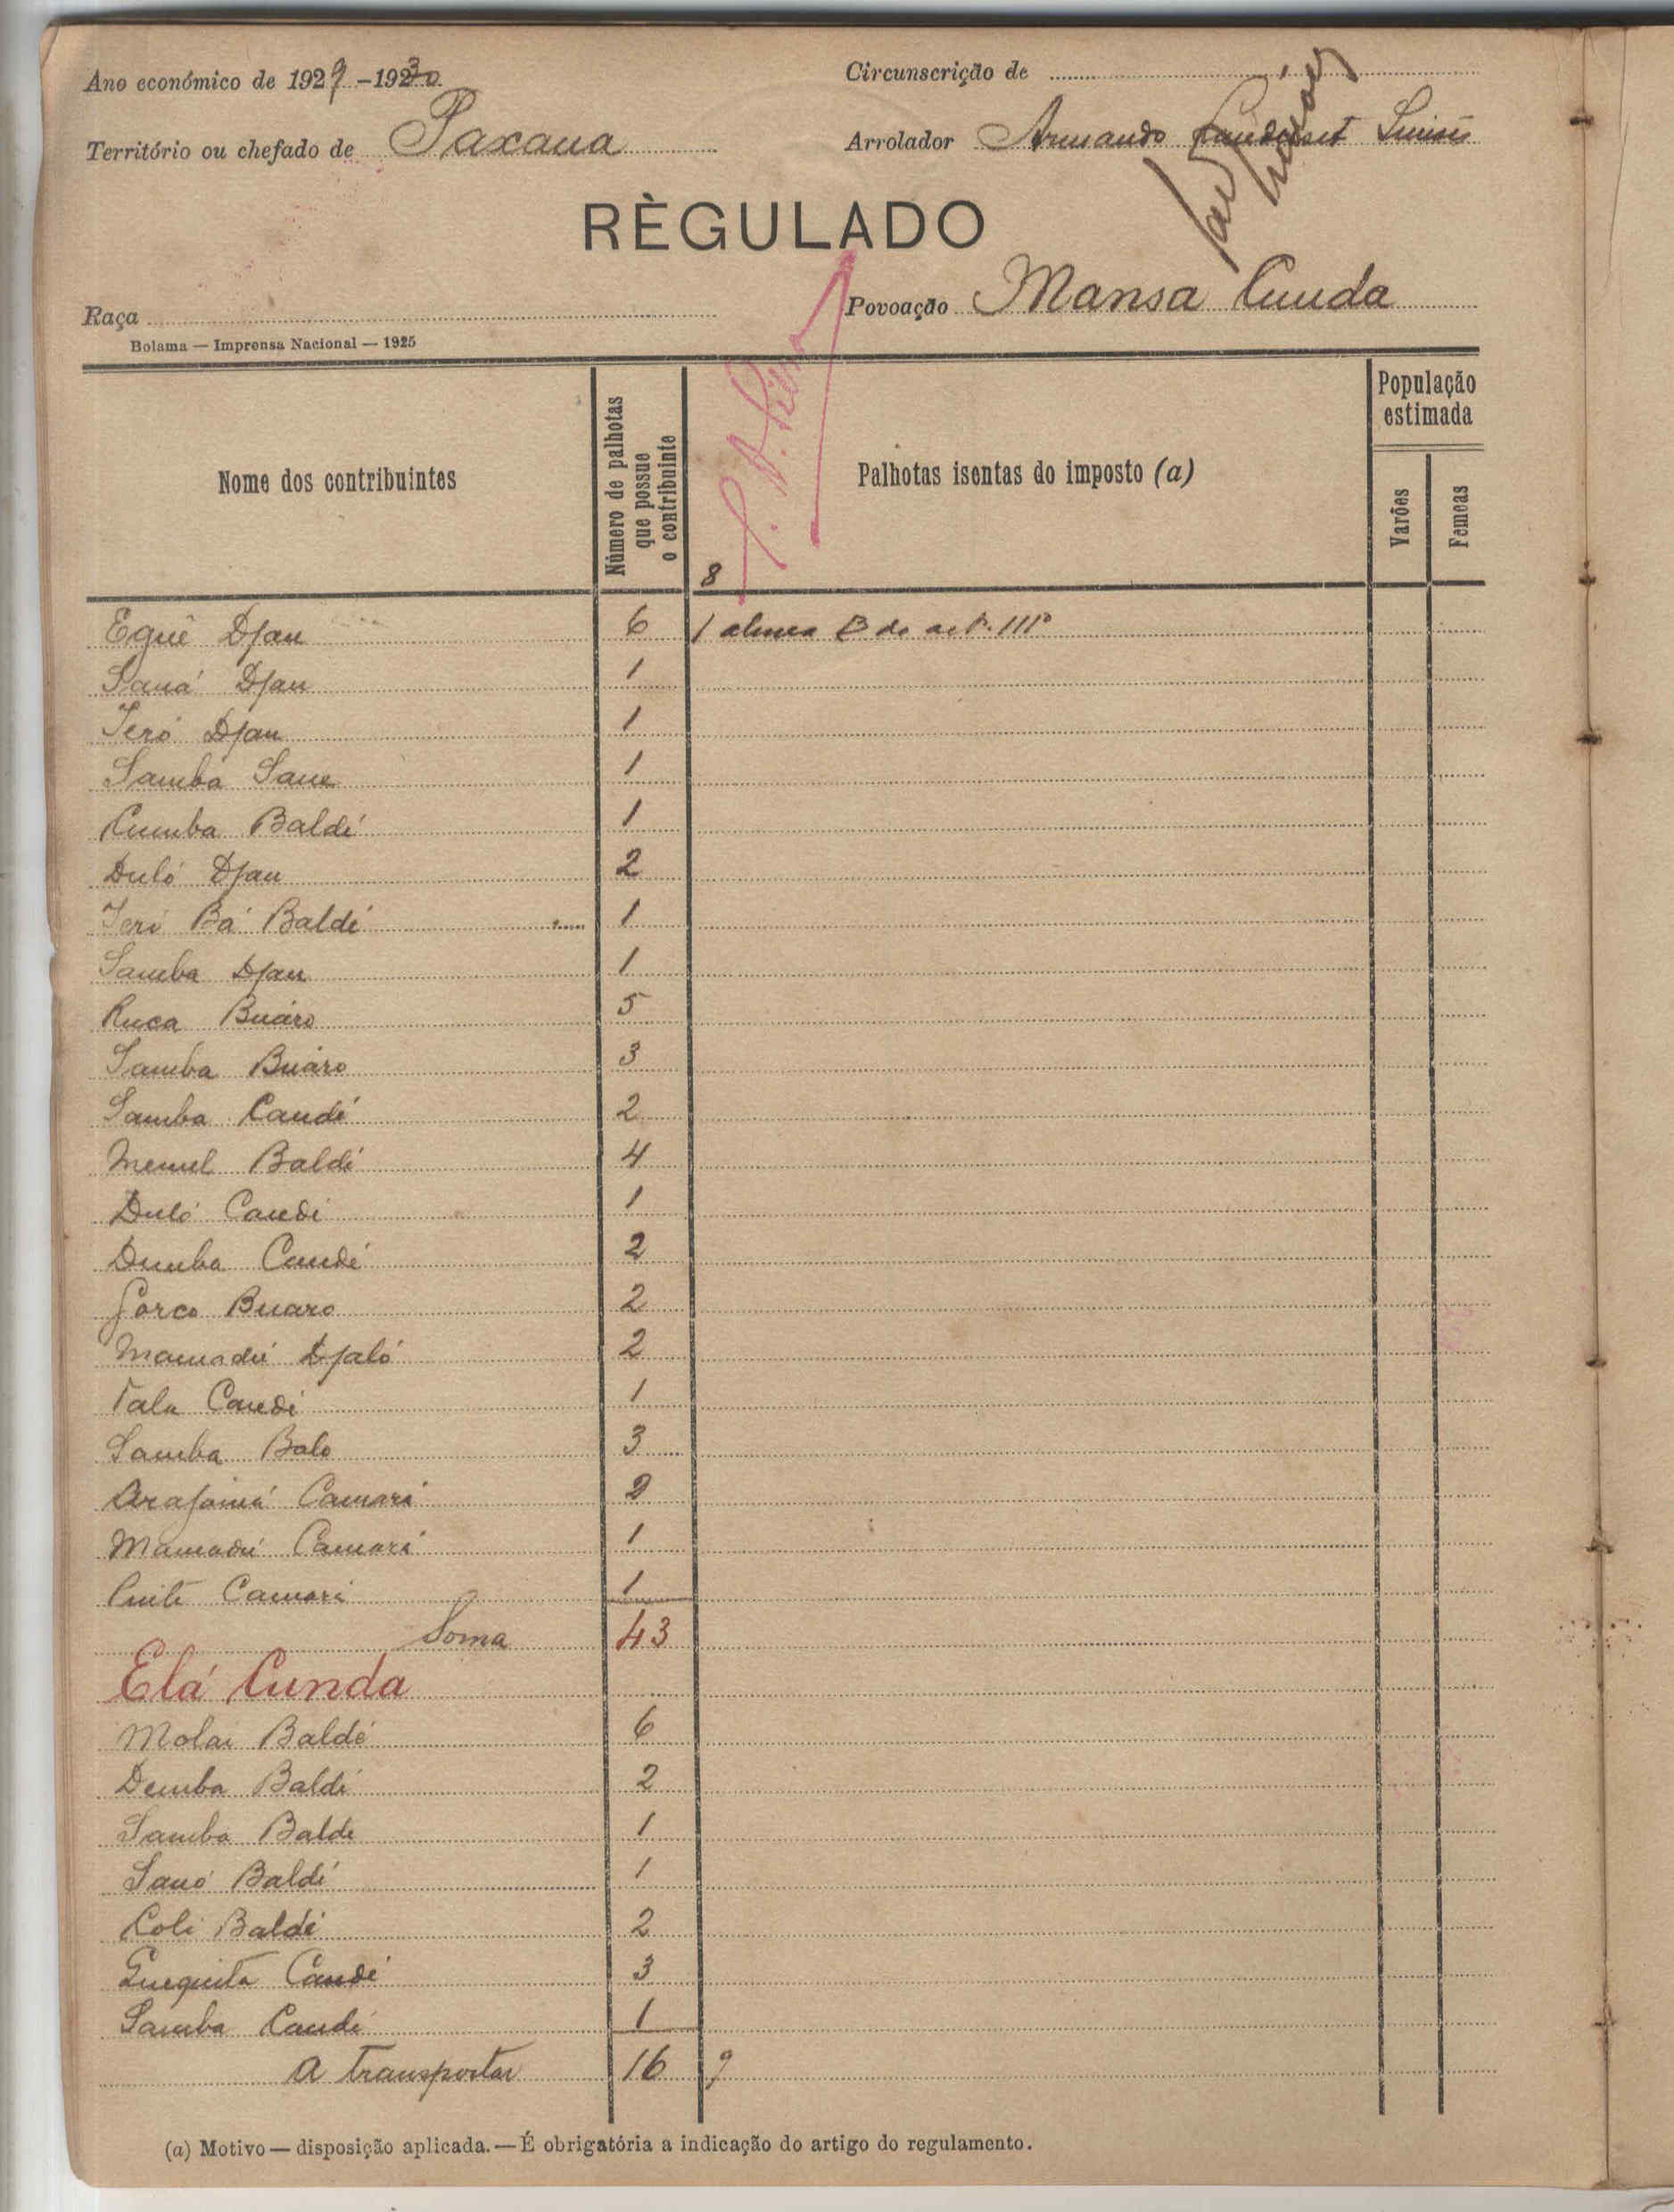 Ano económico de 1929-1930
Circunscrição de
Território ou chefado de Paxana
Arrolador Armando Simões
RÈGULADO
Raça
Povoação Mansa Cunda
Bolama — Imprensa Nacional — 1925
Nome dos contribuintes
Número de palhotas que possue o contribuinte
Palhotas isentas do imposto (a)
População estimada
Varões
Femeas
8
Egué Djau 6 1 alinea B do art. 111º
Saná Djau 1
Jeró Djau 1
Samba Sane 1
Cumba Baldé 1
Duló Djau 2
Jeró Bá Baldé 1
Samba Djau 1
Ruca Buáro 5
Samba Buáro 3
Samba Candé 2
Memel Baldé 4
Duló Candé 1
Demba Candé 2
Gorco Buaro 2
Mamadú Djaló 2
Tala Candé 1
Samba Balo 3
Arafamá Camará 2
Mamadú Camará 1
Camará 1
Soma 43
Elá Cunda
Molai Baldé 6
Demba Baldé 2
Samba Balde 1
Sanó Baldé 1
Coli Baldé 2
Candé 3
Samba Candé 1
A transportar 16 9
(a) Motivo — disposição aplicada. — É obrigatória a indicação do artigo do regulamento.